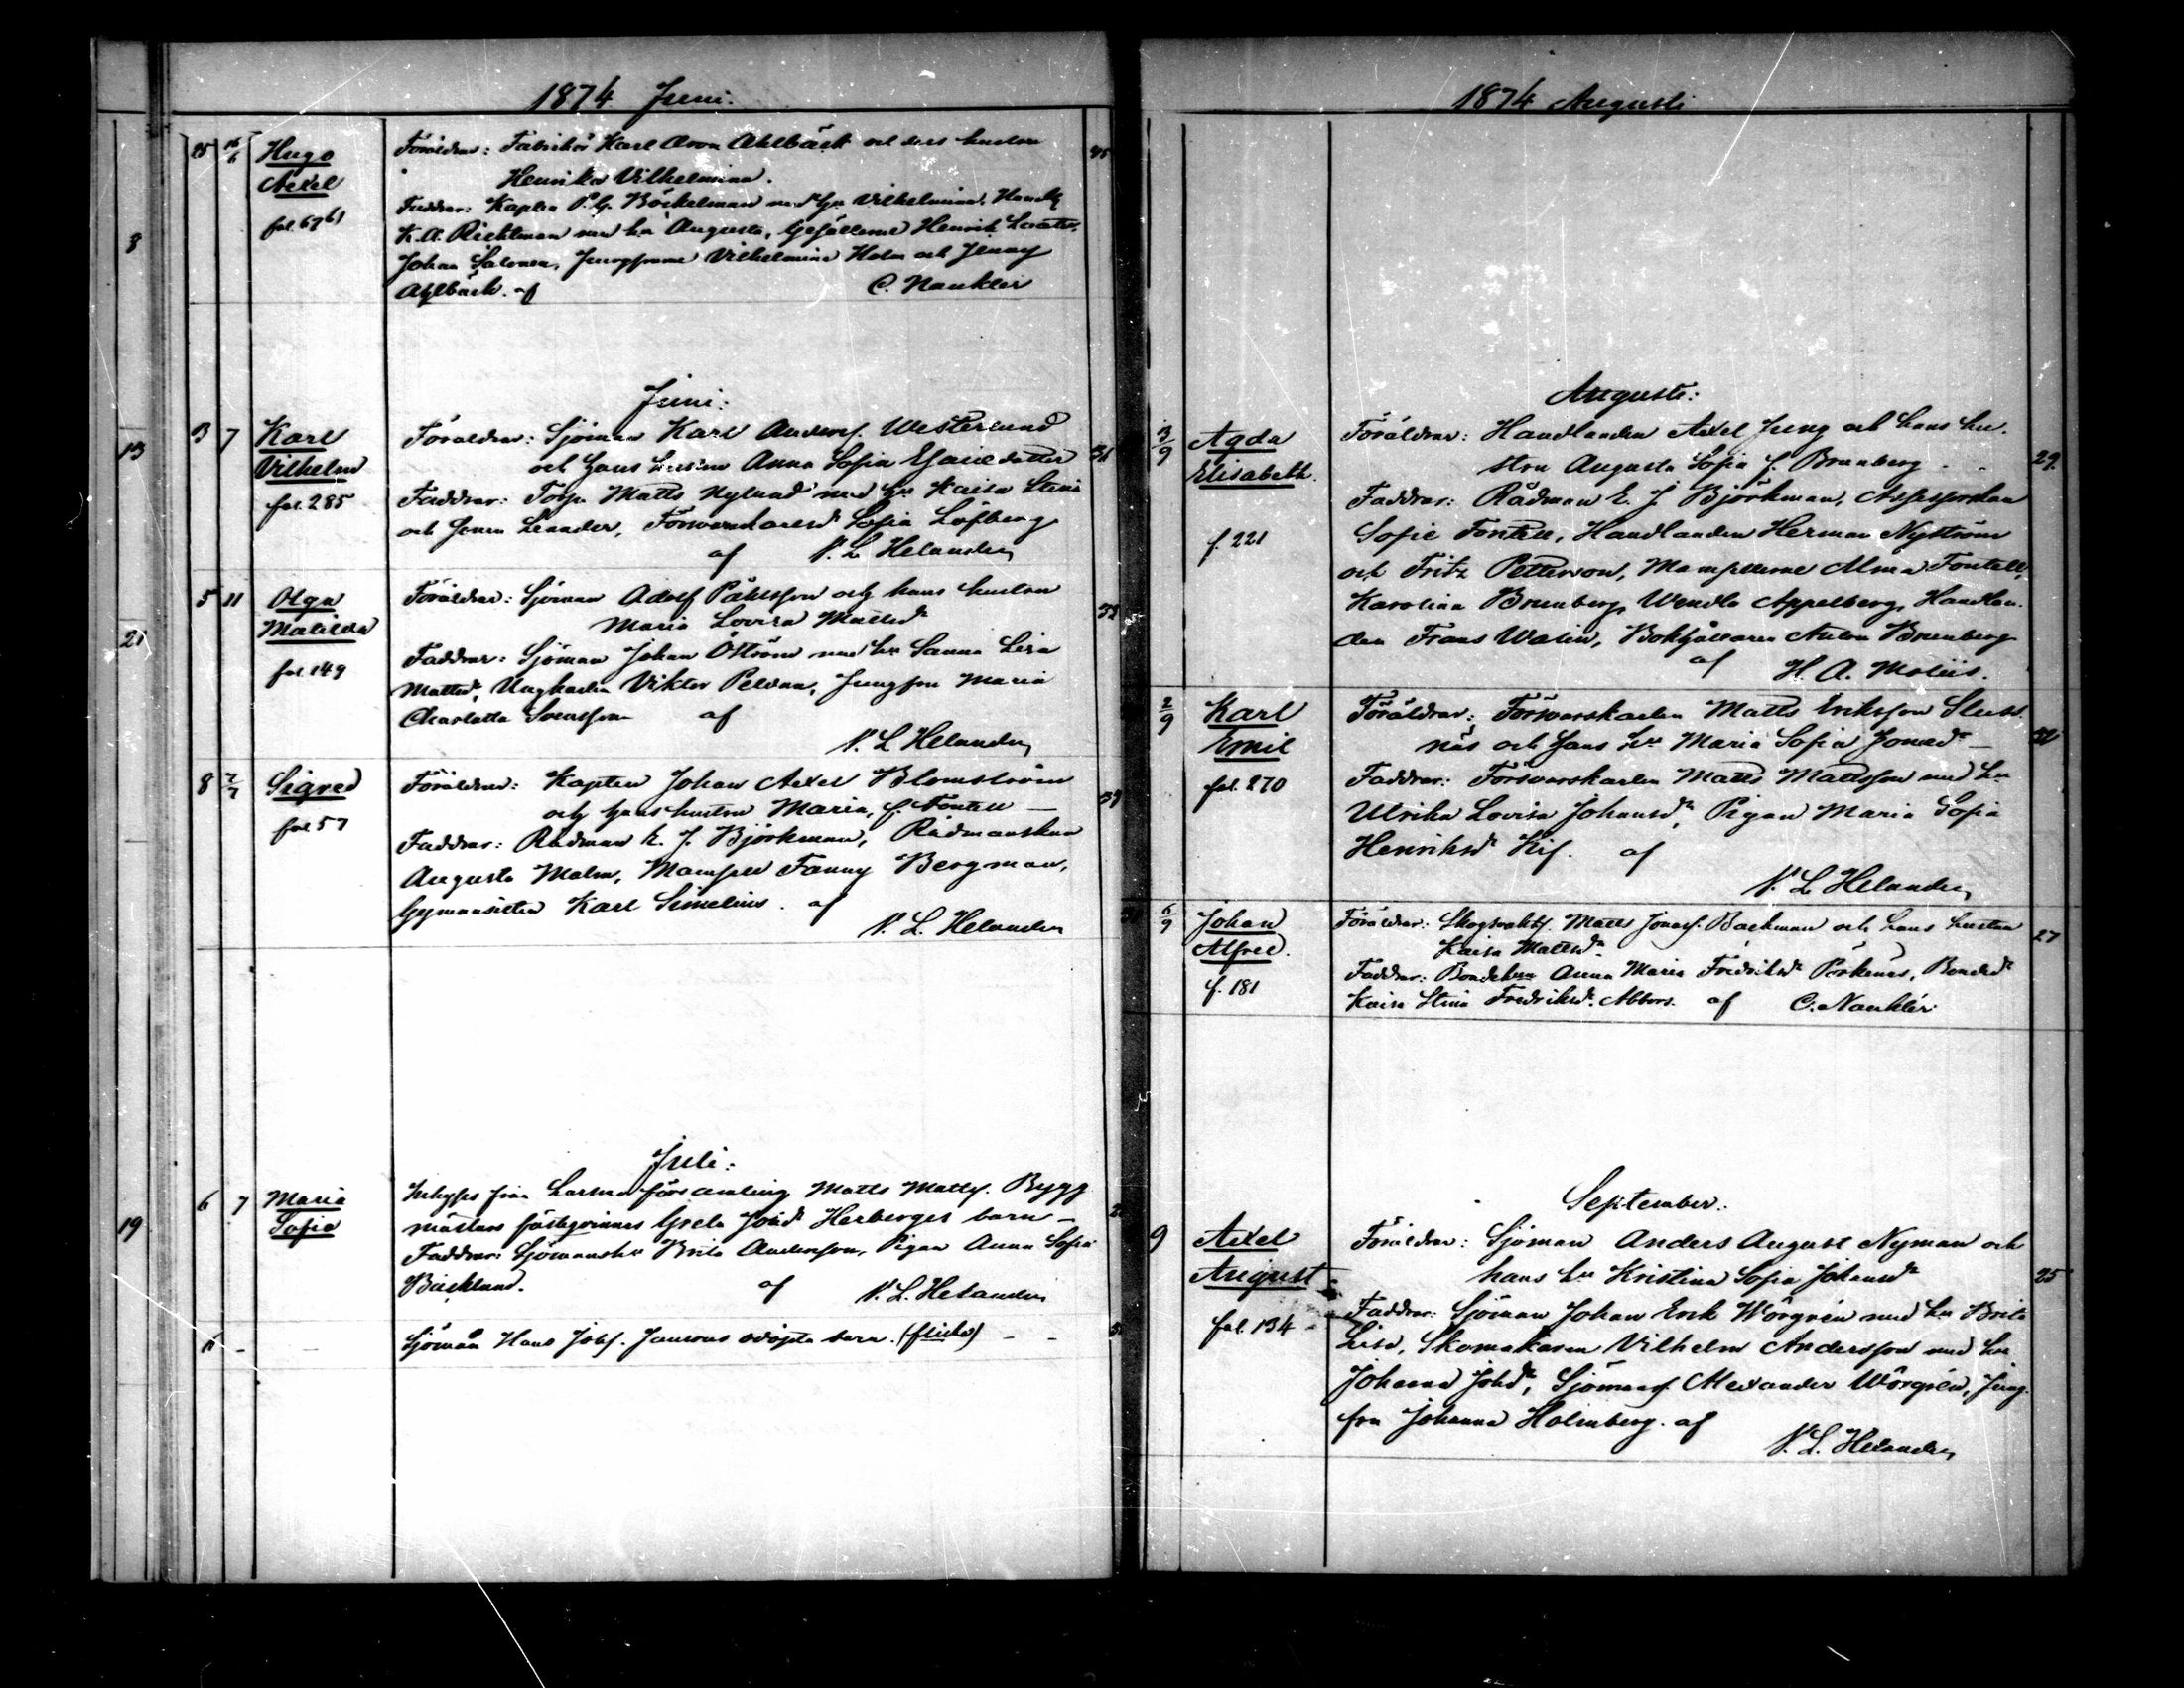 1874 Juni.
25 15/6 Hugo Axel fol. 67
Föräldrar: Fabrikör Karl Ahlbäck och dess hustru 45
Henrika Vilhelmina.
Faddrar: Kapten P. G. Böckelman med hu Vilhelmina,
K. A. Richtman med hu Augusta, Gesällerne Henrik
Johan Salonen, Jungfrurne Vilhelmina Holm och Jenny
Ahlbäck. af C. Nauklér
8
Juni:
13
3 7 Karl Vilhelm fol. 285
Föräldrar: Sjöman Karl Anders. Westerlund
och hans hustru Anna Sofia Esaiedotter
Faddrar: Torp. Matts Nylund med hu Kaisa Stina
och Jonen Lenander, Sofia Löfberg
af N. L. Helander
5 11 Olga Matilda fol. 149
Föräldrar: Sjöman Adolf Påhlsson och hans hustru
Maria Lovisa Mattsdr
21
Faddrar: Sjöman Johan Öström med hu Sanna Lisa
Mattsdr, Ungkarlen Viktor Jungfru Maria
Charlotta Svensson af
N. L. Helander
8 2/7 Sigred fol 57
Föräldrar: Kapten Johan Axel Blomström
och hans hustru Maria, f. Fontell —
Faddrar: Rådman E. J. Björkman, Rådmanskan
Augusta Malm, Mamsell Fanny Bergman,
Gymnasisten Karl Simelius. af
N. L. Helander
Juli:
6 7 Maria Sofia
Inhyses från Larsmo församling Matts Matts. Bygg
19
mästars fästeqvinnas Greta Johdr Herberges barn —
Faddrar: Sjömanshu Brita Andersson, Pigan Anna Sofia
Bäcklund. af N. L. Helander
6 - Sjöman Hans Johs. Jansons odöpta barn. (flicka) - -
1874 Augusti
Augusti:
3/9 Agda Elisabeth. f. 221
Föräldrar: Handlanden Axel Jung och hans hu-
stru Augusta Sofia f. Brunberg - - 29
Faddrar: Rådman E. J. Björkman, Assessorskan
Sofie Fontell, Handlanden Herman Nyström
och Fritz Petterson, Mamsellerne Alma Fontell,
Karolina Brunberg, Wendla Appelberg, Handlan-
den Frans Walin, Bokhållaren Anton Brunberg
af H. A. Moliis.
2/9 Karl Emil fol. 270
Föräldrar: Försvarskarlen Matts Eriksson
näs och hans hu Maria Sofia Jonasdr —
Faddrar: Försvarskarlen Matts Mattsson med hu
Ulrika Lovisa Johansdr, Pigan Maria Sofia
Henriksdr Kif. af
N. L. Helander
6/9 Johan Alfred. f. 181
Föräldrar: Skogvakts. Matts Jonas. Backman och hans hustru
Kaisa Mattsdr 27
Faddrar: Bondehun Anna Maria Fredriksdr Pörkenäs, Bondedr
Kaisa Stina Fredriksdr Abbors. af C. Nauklér
September:
9 Axel August fol. 134
Föräldrar: Sjöman Anders August Nyman och
hans hu Kristina Sofia Johansdr 25
Faddrar: Sjöman Johan Erik Wörgrén med hu Brita
Lisa, Skomakaren Vilhelm Andersson med hu
Johanna Johdr, Sjömans. Alexander Wörgrén, Jung-
fru Johanna Holmberg. af
N. L. Helander